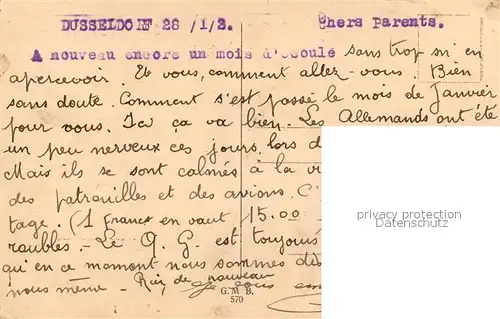 DUSSELDORF 28 /1/2. Chers parents.
A nouveau encore un mois d'écoulé sans trop s'en
apercevoir. Et vous, comment allez-vous. Bien
sans doute. Comment s'est passé le mois de Janvier
pour vous. Ici ça va bien. Les Allemands ont été
un peu nerveux ces jours, lors d
Mais ils se sont calmés à la v
des patrouilles et des avions. C'
tage. (1 Franc en vaut 15.00
raubles. - Le Q. G. est toujours
qui en ce moment nous sommes
nous même - Rien de nouveau
je vous em
G. M. B.
570
privacy protection
oldthing.de